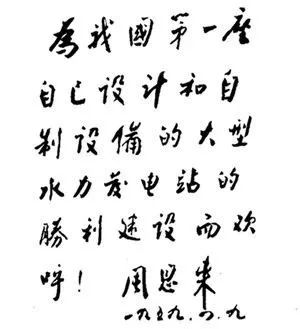 為我國第一座
自己設计和自
制設備的大型
水力发电站的
勝利建設而欢
呼！ 周恩来
一九五九.四.九